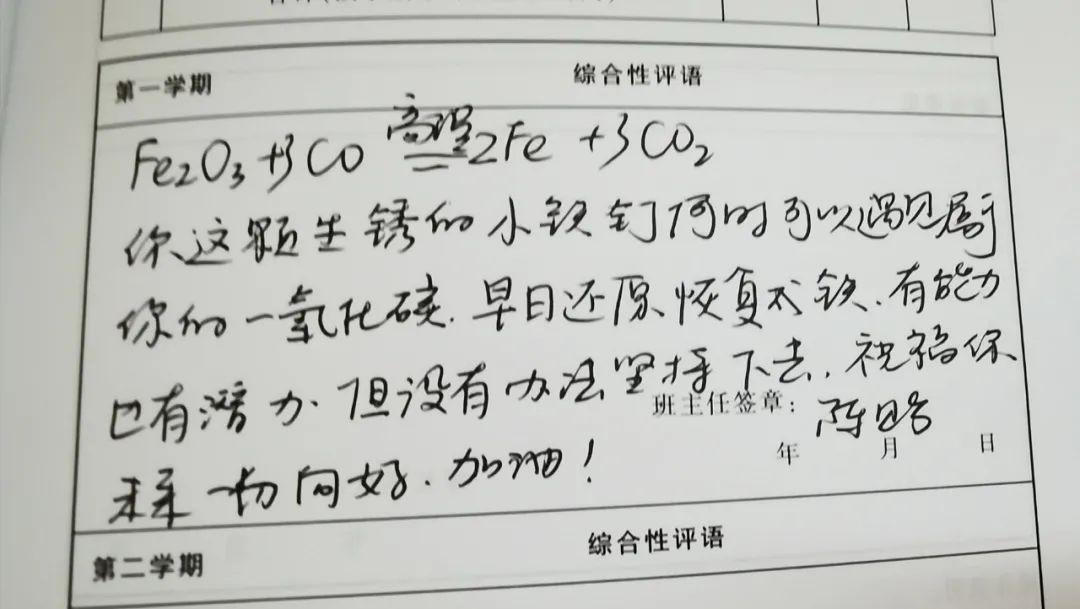 第一学期 综合性评语
Fe₂O₃+3CO 高温 = 2Fe +3CO₂
你这颗生锈的小铁钉何时可以遇见属于
你的一氧化碳.早日还原恢复成铁.有能力
也有潜力.但没有办法坚持下去.祝福你
班主任签章:陈
未来一切向好.加油!
年 月 日
第二学期 综合性评语